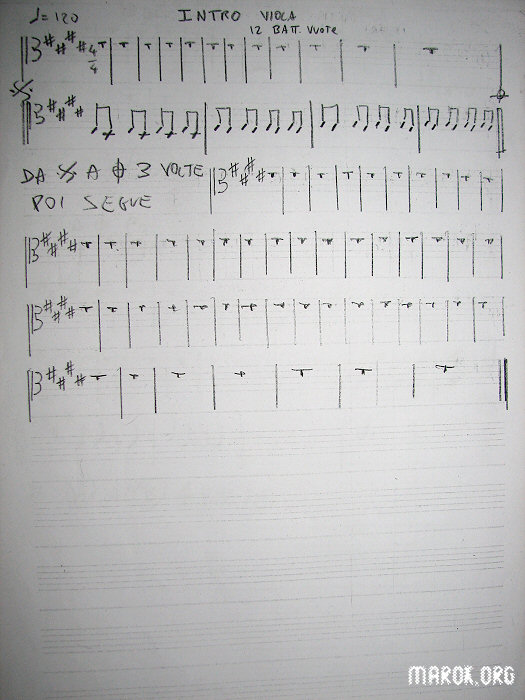 ♩=120 INTRO VIOLA
12 BATT. VUOTE
4
4
DA 𝄋 A 𝄌 3 VOLTE
POI SEGUE
MAROK.ORG